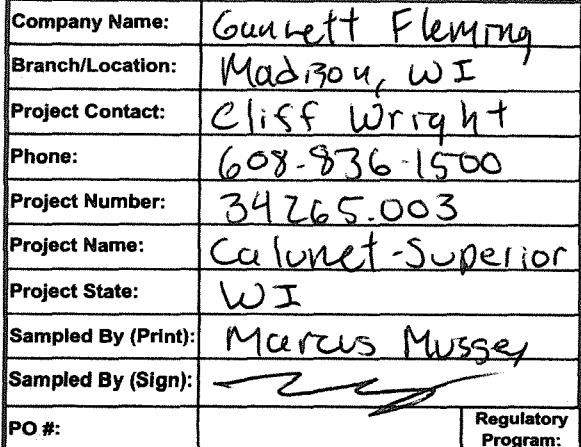 Company Name: Gannett Fleming
Branch/Location: Madison, WI
Project Contact: Cliff Wright
Phone: 608-836-1500
Project Number: 34265.003
Project Name: Calumet-Superior
Project State: WI
Sampled By (Print): Marcus Mussey
Sampled By (Sign):
PO #: Regulatory
Program: